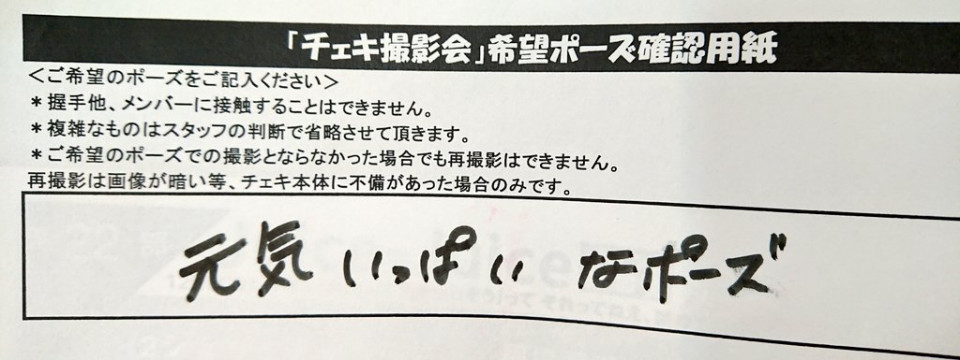 「チェキ撮影会」希望ポーズ確認用紙
＜ご希望のポーズをご記入ください＞
＊握手他、メンバーに接触することはできません。
＊複雑なものはスタッフの判断で省略させて頂きます。
＊ご希望のポーズでの撮影とならなかった場合でも再撮影はできません。
再撮影は画像が暗い等、チェキ本体に不備があった場合のみです。
元気いっぱいなポーズ